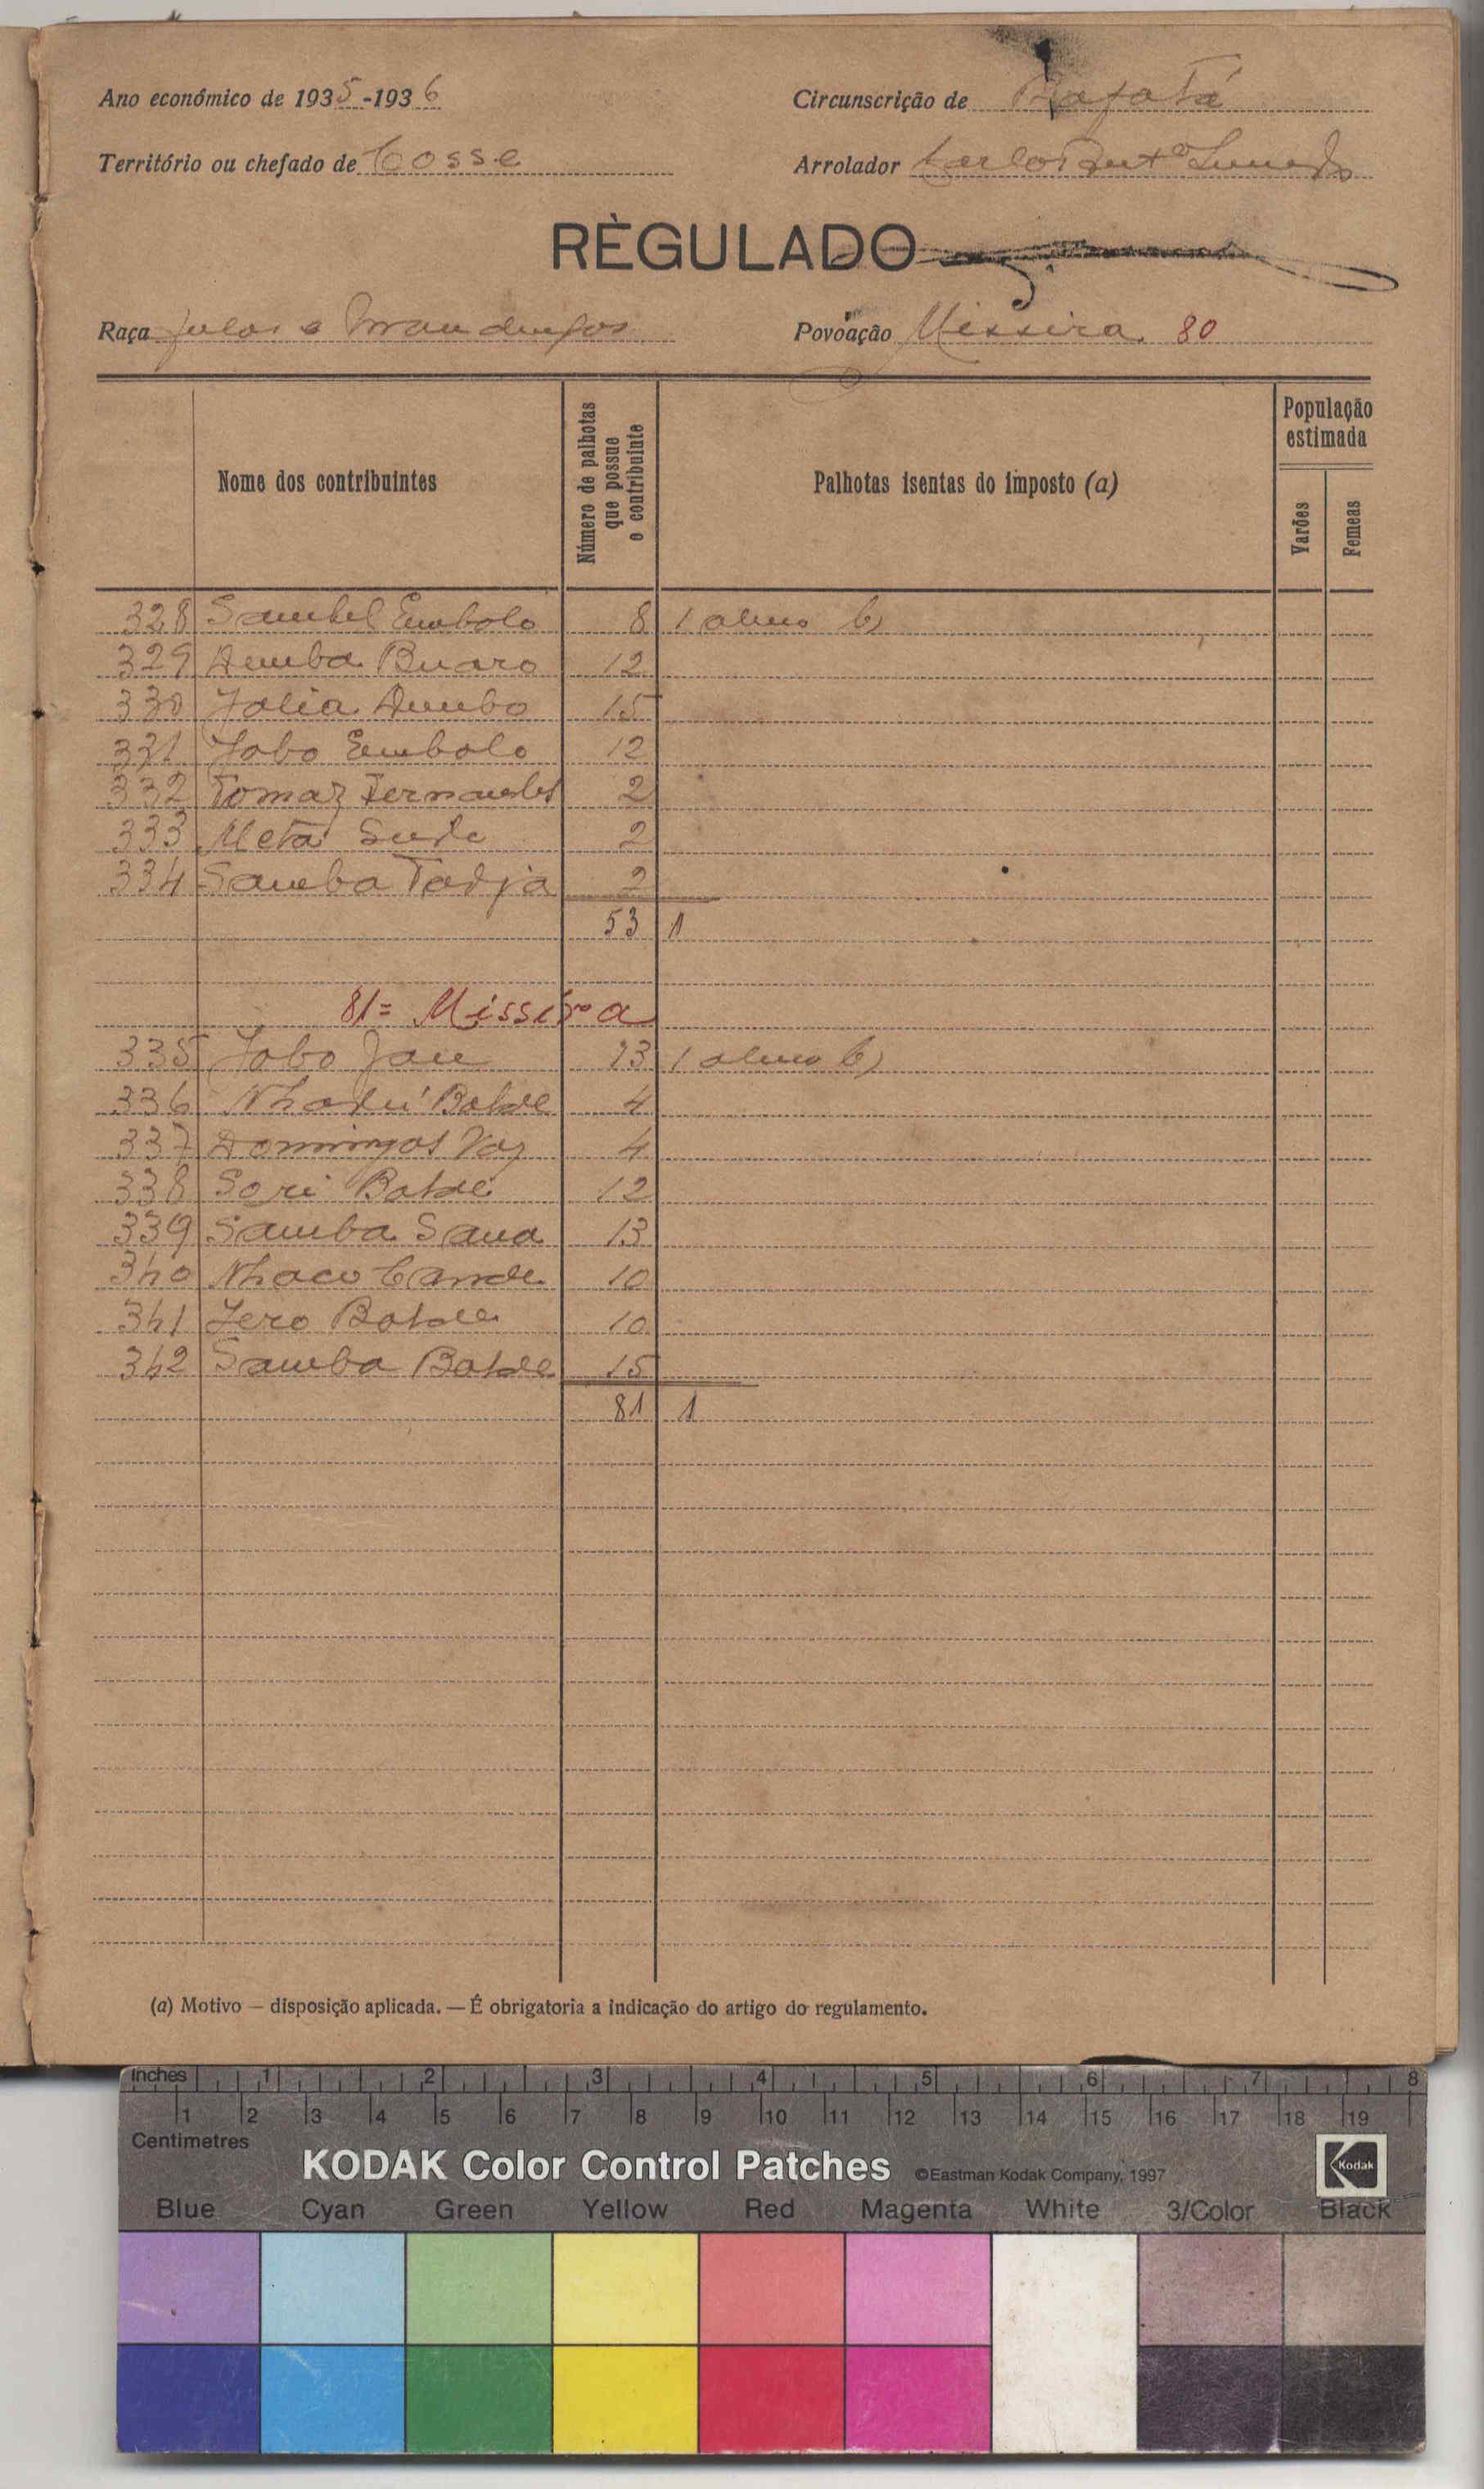 Ano económico de 1935-1936
Circunscrição de Bafatá
Território ou chefado de Cosse
Arrolador Carlos Antº
RÈGULADO
Raça Fulas e Mandingas
Povoação Missira 80
Nome dos contribuintes
Número de palhotas que possue o contribuinte
Palhotas isentas do imposto (a)
População estimada
Varões
Femeas
328 Sambel Embalo 8 1 alinea b)
329 Demba Buaro 12
330 Jalia Demba 15
331 Jobo Embalo 12
332 Tomaz Fernandes 2
333 Meta 2
334 Samba Tadja 2
53 1
81= Missira
335 Jobo Jau 13 1 alinea b)
336 Balde 4
337 Domingos Vaz 4
338 Sori Balde 12
339 Samba Sana 13
340 Nhaco Cande 10
341 Jero Balde 10
342 Samba Balde 15
81 1
(a) Motivo — disposição aplicada. — É obrigatoria a indicação do artigo do regulamento.
Inches 1 2 3 4 5 6 7 8
1 2 3 4 5 6 7 8 9 10 11 12 13 14 15 16 17 18 19
Centimetres
KODAK Color Control Patches ©Eastman Kodak Company, 1997 Kodak
Blue Cyan Green Yellow Red Magenta White 3/Color Black